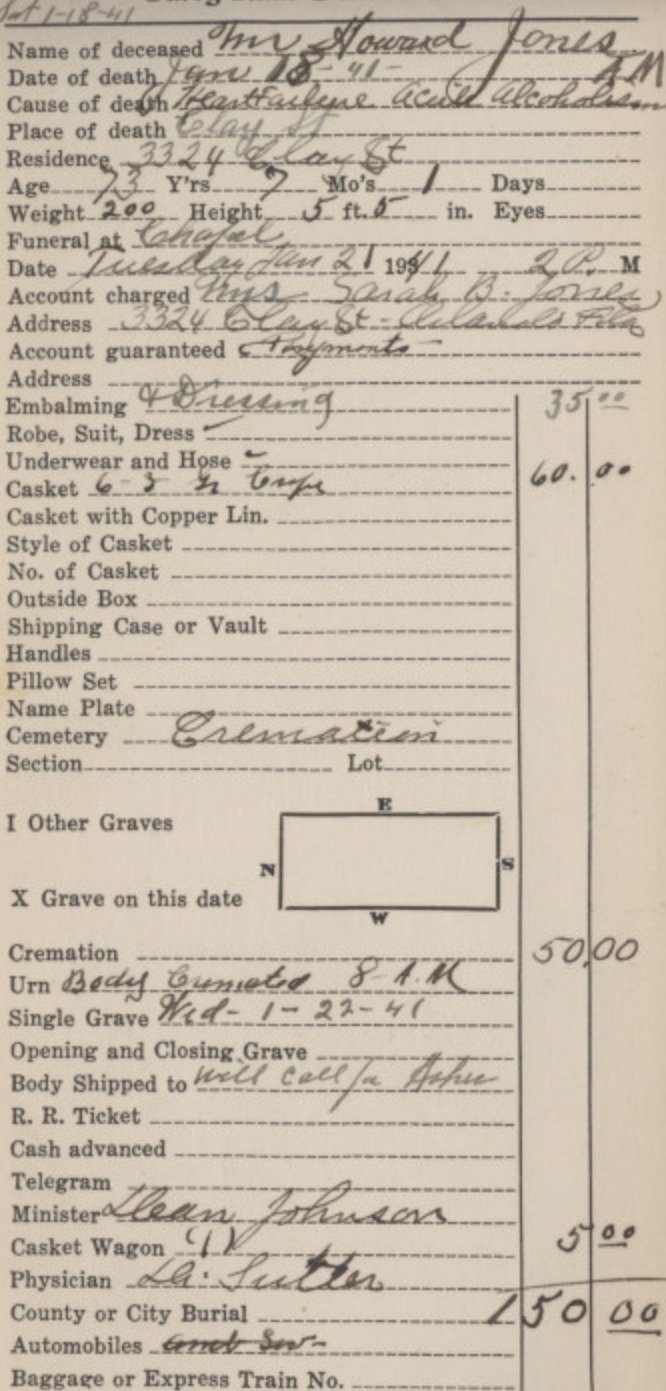 Sat 1-18-41
Name of deceased Mr Howard Jones
Date of death Jan 18-41- A.M
Cause of death Heart Failure acute alcoholism
Place of death Clay St
Residence 3324 Clay St
Age 73 Y'rs 7 Mo's 1 Days
Weight 200 Height 5 ft. 5 in. Eyes
Funeral at Chapel
Date Tuesday Jan 21 1941 2 P. M
Account charged Mrs Sarah B. Jones
Address 3324 Clay St - Orlando Fla
Account guaranteed Payments
Address
Embalming & Dressing 35 00
Robe, Suit, Dress
Underwear and Hose
Casket 6-3 Crepe 60. 00
Casket with Copper Lin.
Style of Casket
No. of Casket
Outside Box
Shipping Case or Vault
Handles
Pillow Set
Name Plate
Cemetery Cremation
Section Lot
E
I Other Graves
N S
X Grave on this date
W
Cremation 50,00
Urn Body Cremated 8 A.M
Single Grave Wed- 1-22-41
Opening and Closing Grave
Body Shipped to will call for Ashes
R. R. Ticket
Cash advanced
Telegram
Minister Dean Johnson
Casket Wagon (1) 5 00
Physician Dr. Sutter
County or City Burial 150 00
Automobiles
Baggage or Express Train No.